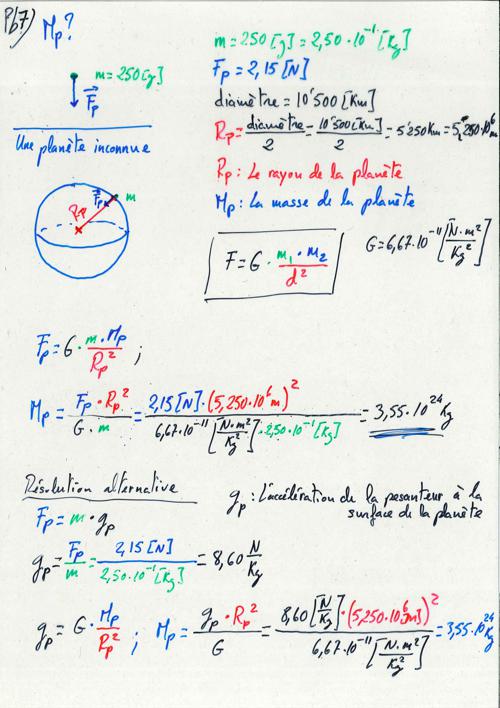 Pb7)
Mp?
m = 250 [g]
Fp
Une planète inconnue
Fp
m
Rp
m = 250 [g] = 2,50 · 10⁻¹ [Kg]
Fp = 2,15 [N]
diamètre = 10'500 [Km]
Rp = diamètre / 2 = 10'500 [Km] / 2 = 5'250 Km = 5,250 · 10⁶ m
Rp : Le rayon de la planète
Mp : La masse de la planète
F = G · m₁ · m₂ / d²
G = 6,67 · 10⁻¹¹ [N · m² / Kg²]
Fp = G · m · Mp / Rp² ;
Mp = Fp · Rp² / G · m = 2,15 [N] · (5,250 · 10⁶ m)² / 6,67 · 10⁻¹¹ [N · m² / Kg²] · 2,50 · 10⁻¹ [Kg] = 3,55 · 10²⁴ Kg
Résolution alternative
gp : L'accélération de la pesanteur à la
surface de la planète
Fp = m · gp
gp = Fp / m = 2,15 [N] / 2,50 · 10⁻¹ [Kg] = 8,60 N / Kg
gp = G · Mp / Rp² ; Mp = gp · Rp² / G = 8,60 [N / Kg] · (5,250 · 10⁶ [m])² / 6,67 · 10⁻¹¹ [N · m² / Kg²] = 3,55 · 10²⁴ Kg